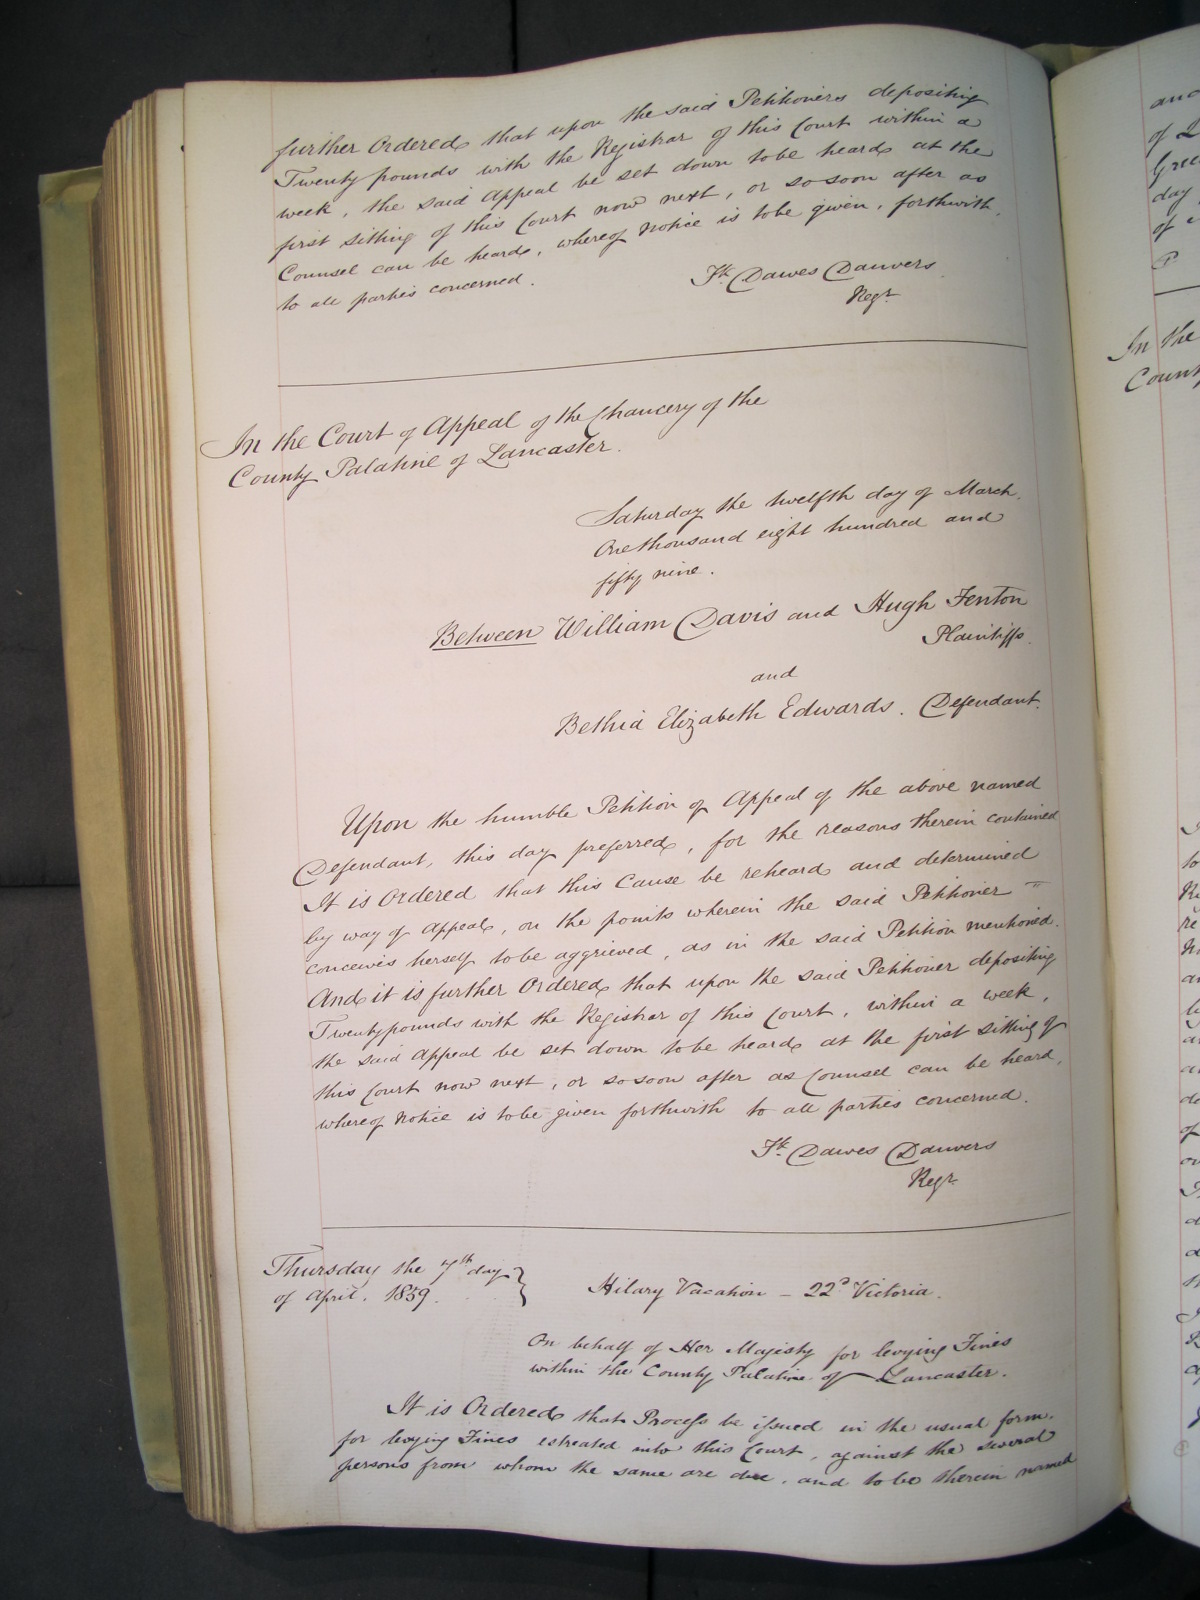 further Ordered that upon the said Petitioners depositing
Twenty pounds with the Registrar of this Court within a
week, the said Appeal be set down to be heard at the
first sitting of this Court now next, or so soon after as
Counsel can be heard, whereof notice is to be given, forthwith,
to all parties concerned.
Fk. Dawes Danvers
Regr.
In the Court of Appeal of the Chancery of the
County Palatine of Lancaster.
Saturday the twelfth day of March
One thousand eight hundred and
fifty nine.
Between William Davis and Hugh Fenton
Plaintiffs
and
Bethia Elizabeth Edwards. Defendant.
Upon the humble Petition of Appeal of the above named
Defendant, this day preferred, for the reasons therein contained
It is Ordered that this Cause be reheard and determined
by way of Appeal, on the points wherein the said Petitioner
conceives herself to be aggrieved, as in the said Petition mentioned.
And it is further Ordered that upon the said Petitioner depositing
Twenty pounds with the Registrar of this Court, within a week,
the said Appeal be set down to be heard at the first sitting of
this Court now next, or so soon after as Counsel can be heard,
whereof notice is to be given forthwith to all parties concerned.
Fk. Dawes Danvers
Regr.
Thursday the 7th day
of April. 1859.
Hilary Vacation – 22d Victoria.
On behalf of Her Majesty for levying Fines
within the County Palatine of Lancaster.
It is Ordered that Process be issued in the usual form.
for levying Fines estreated into this Court, against the several
persons from whom the same are due, and to be therein named
and
of
day
of
In the
County